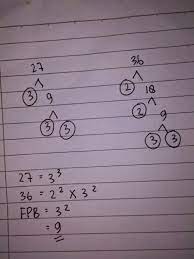 27 36
3 9 2 18
3 3 2 9
3 3
27 = 3³
36 = 2² × 3²
FPB = 3²
= 9